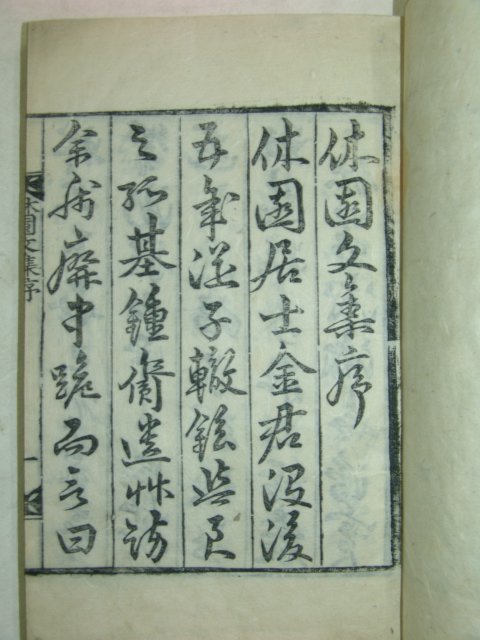 休園文集序
休園居士金君沒後
五年從子轍鉉與兄
之孤基鍾齎遺艸訪
余於廨中跪而言曰
休園文集序 一